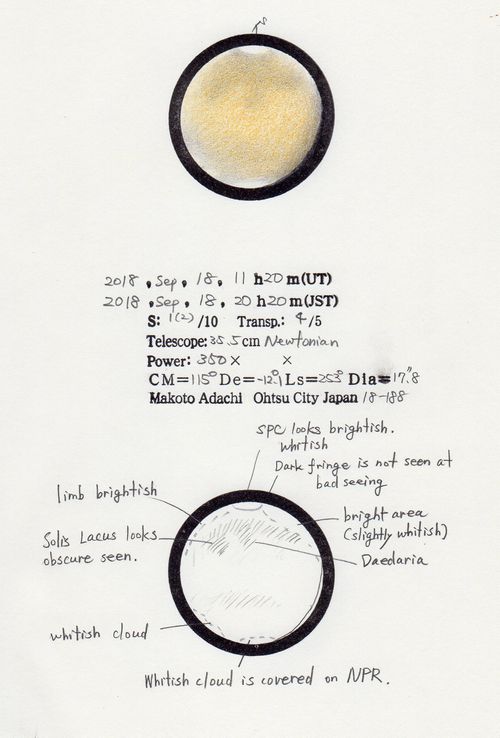 S
2018, Sep, 18, 11 h20 m(UT)
2018, Sep, 18, 20 h20 m(JST)
S: 1(2) /10 Transp.: 4/5
Telescope: 35.5 cm Newtonian
Power: 350× ×
CM=115° De=-12.°1 Ls=253° Dia=17."8
Makoto Adachi Ohtsu City Japan 18-188
SPC looks brightish.
whitish
Dark fringe is not seen at
bad seeing
limb brightish
bright area
(slightly whitish)
Solis Lacus looks
obscure seen.
Daedaria
whitish cloud
Whitish cloud is covered on NPR.